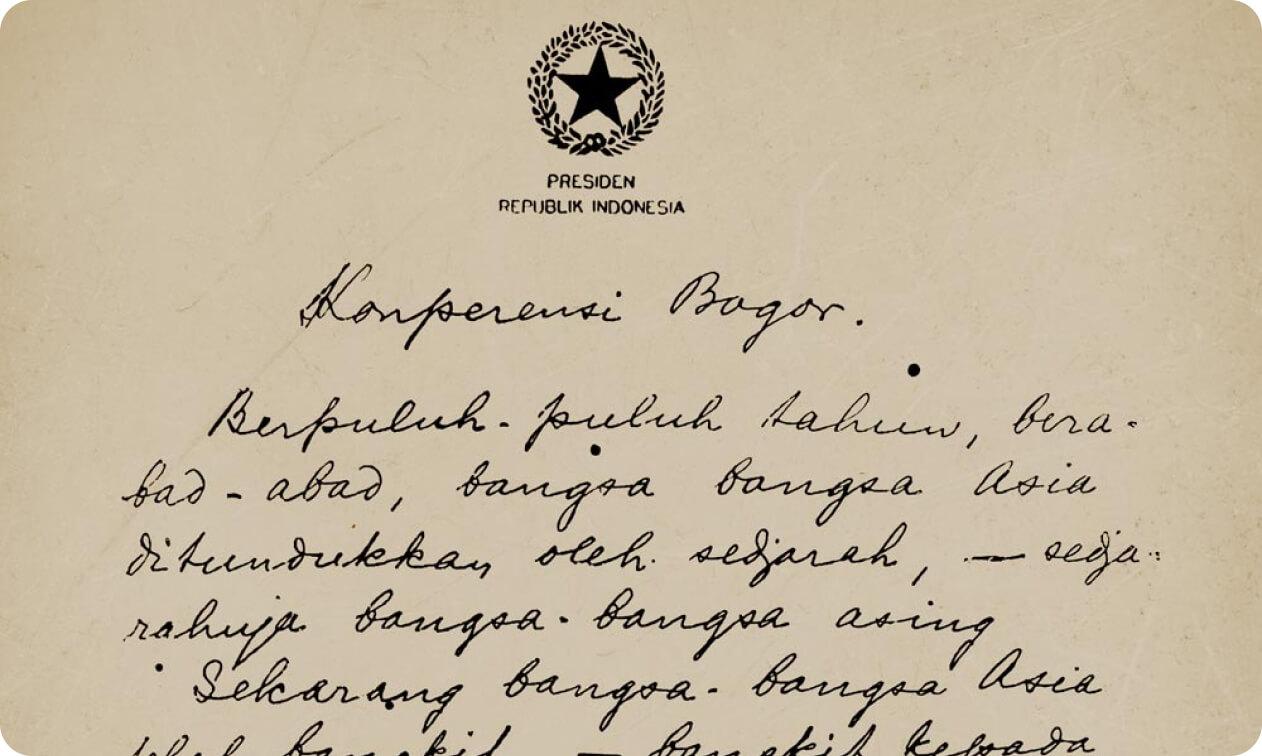 PRESIDEN
REPUBLIK INDONESIA
Konperensi Bogor.
Berpuluh-puluh tahun, bera-
bad-abad, bangsa bangsa Asia
ditundukkan oleh sedjarah, — sedja-
rahnja bangsa-bangsa asing
Sekarang bangsa-bangsa Asia
bangkit, — bangkit kepada